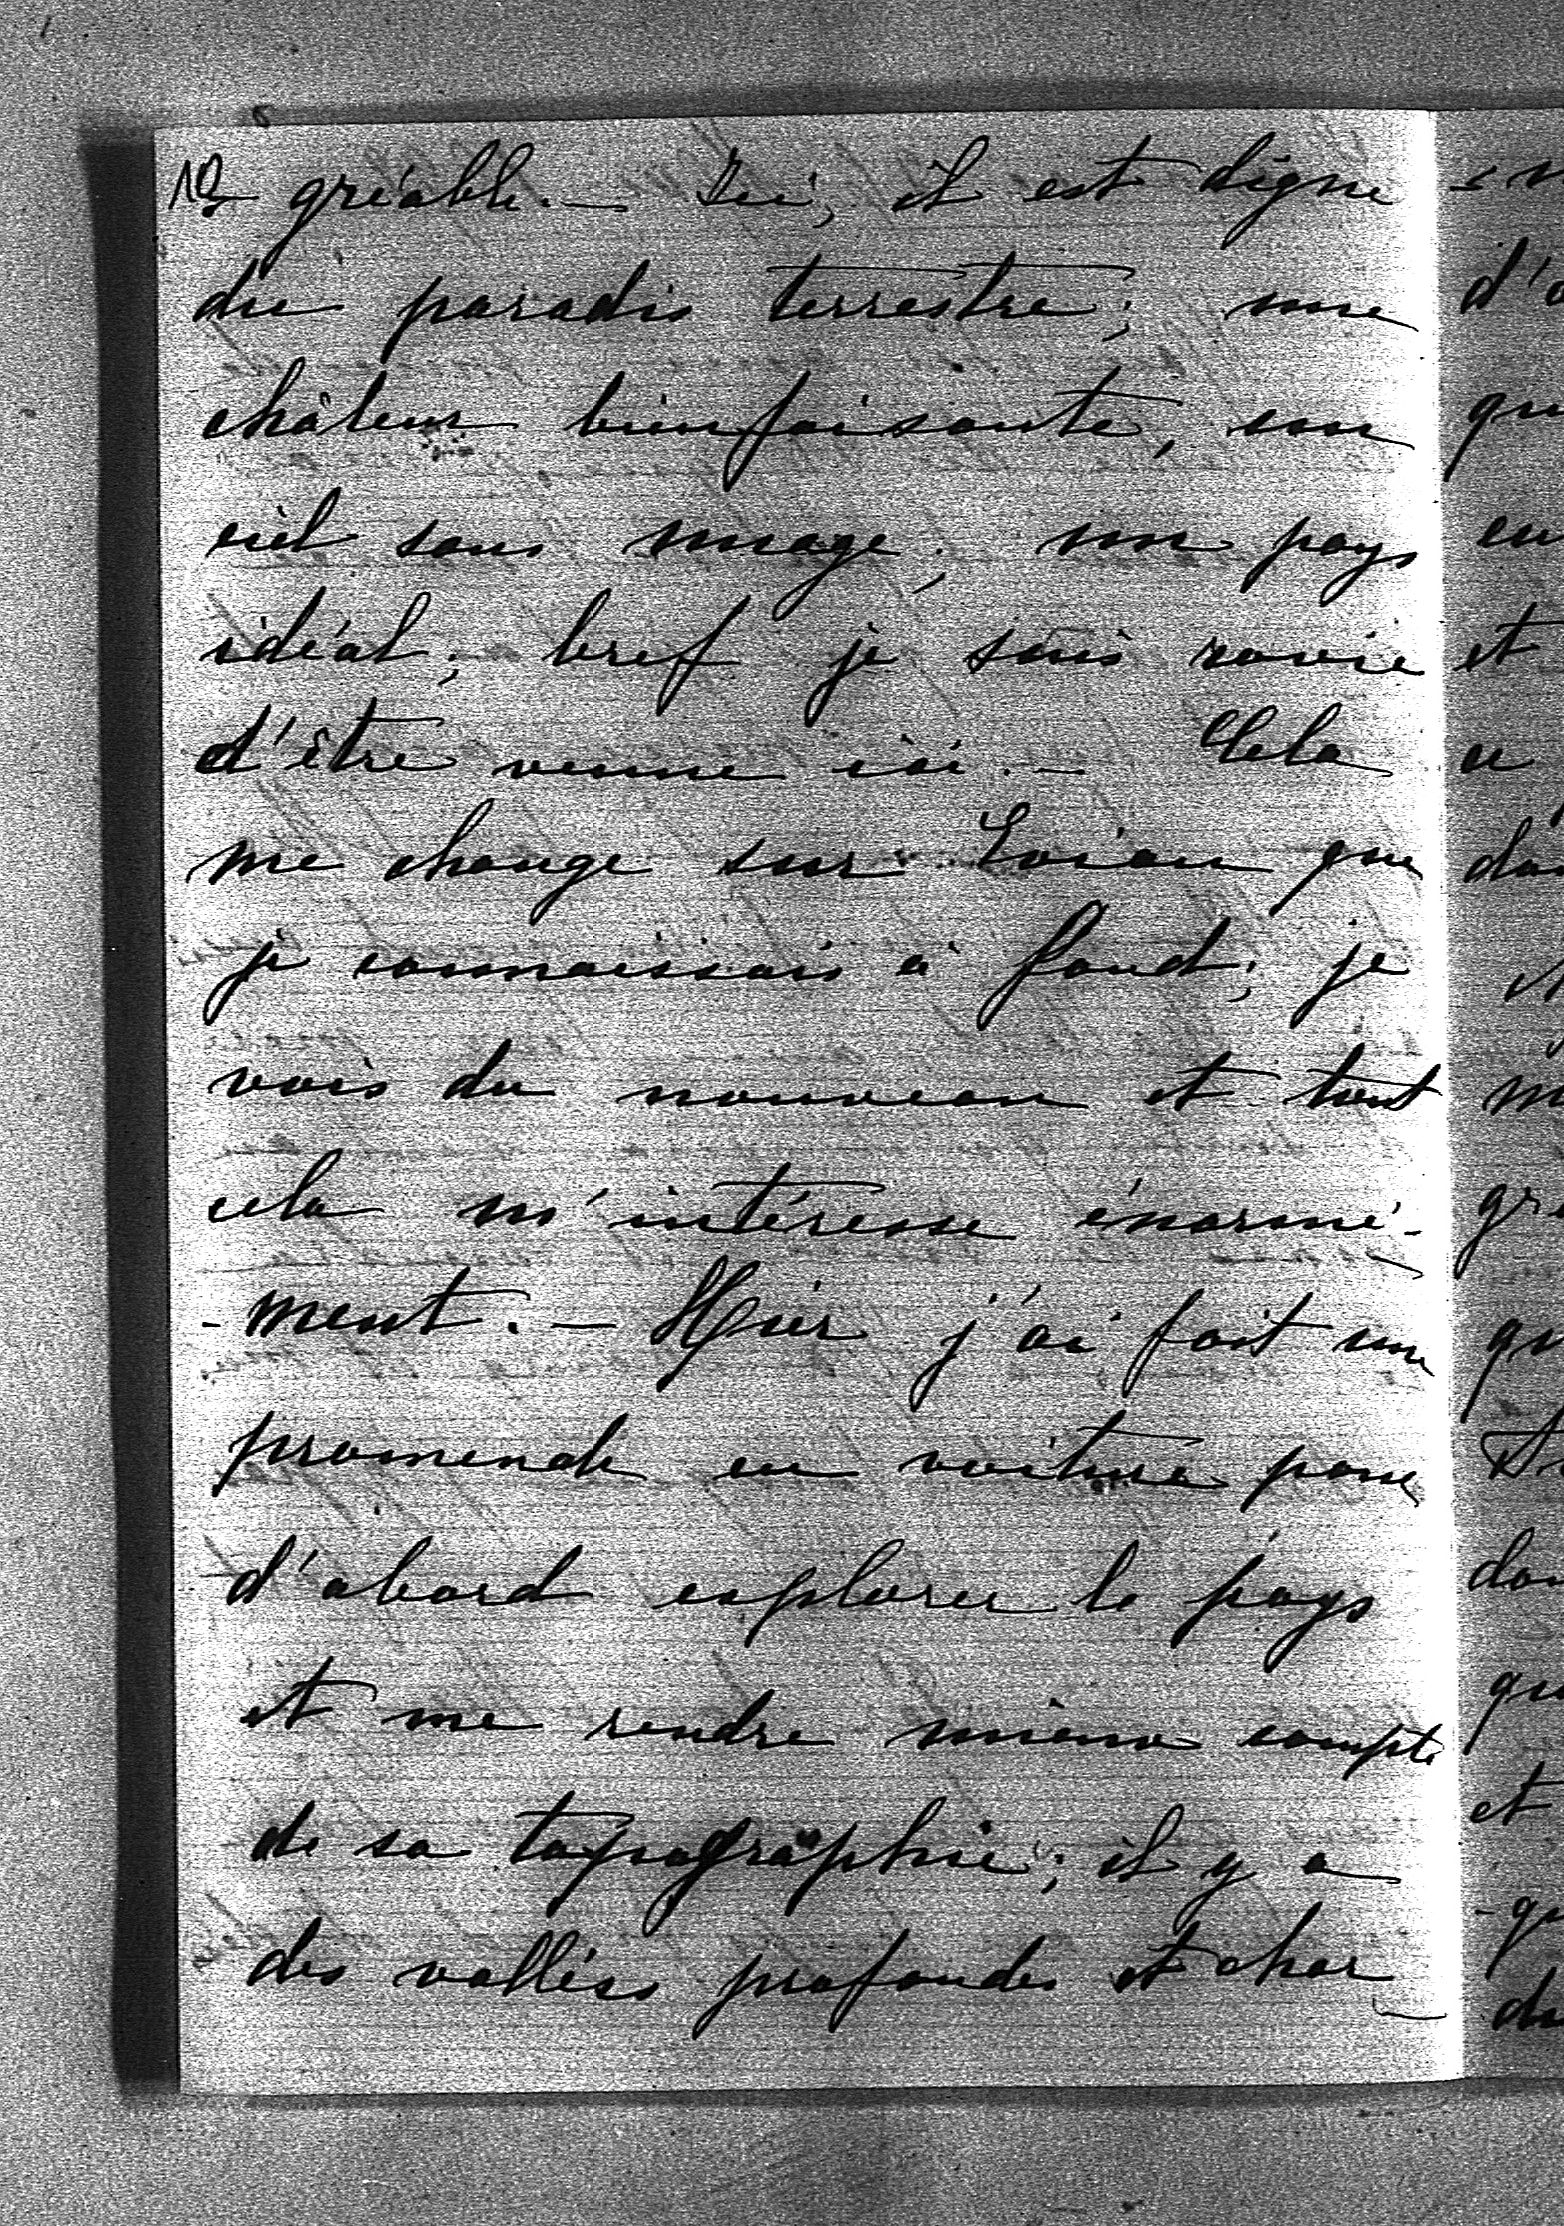 gréable. — Ici, il est digne
du paradis terrestre; une
châleur bienfaisante, un
ciel sans nuage, un pays
idéal; bref je suis ravie
d'être venue ici. — Cela
me change sur Evian que
je connaissais à fond; je
vois du nouveau et tout
cela m'intéresse énormé-
-ment. — Hier j'ai fait une
promenade en voiture pour
d'abord explorer le pays
et me rendre mieux compte
de sa topographie; il y a
des vallées profondes et char